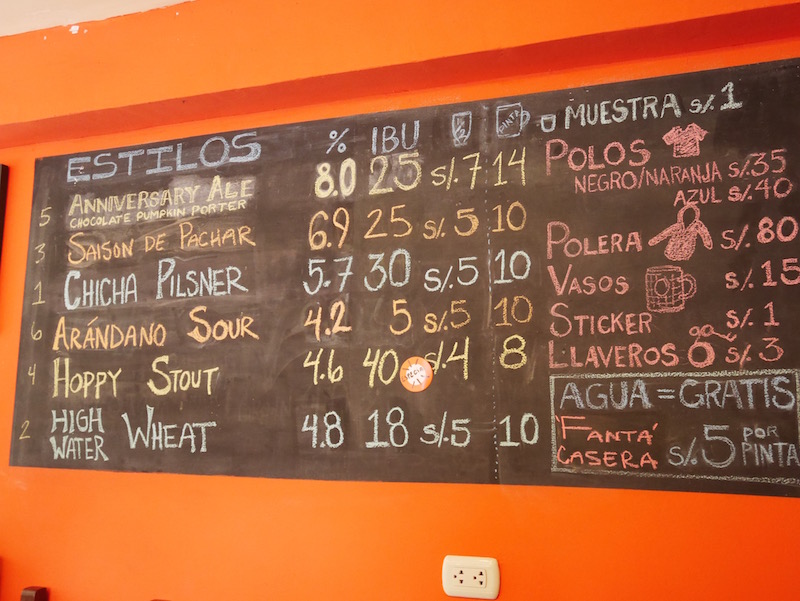 ESTILOS % IBU 1/2 PINTA
5 ANNIVERSARY ALE 8.0 25 s/.7 14
CHOCOLATE PUMPKIN PORTER
3 SAISON DE PACHAR 6.9 25 s/.5 10
1 CHICHA PILSNER 5.7 30 s/.5 10
6 ARÁNDANO SOUR 4.2 5 s/.5 10
4 HOPPY STOUT 4.6 40 s/.4 8
2 HIGH WATER WHEAT 4.8 18 s/.5 10
MUESTRA s/.1
POLOS
NEGRO/NARANJA s/.35
AZUL s/.40
POLERA s/.80
VASOS s/.15
STICKER s/.1
LLAVEROS s/.3
AGUA = GRATIS
'FANTA'
CASERA s/.5 POR PINTA